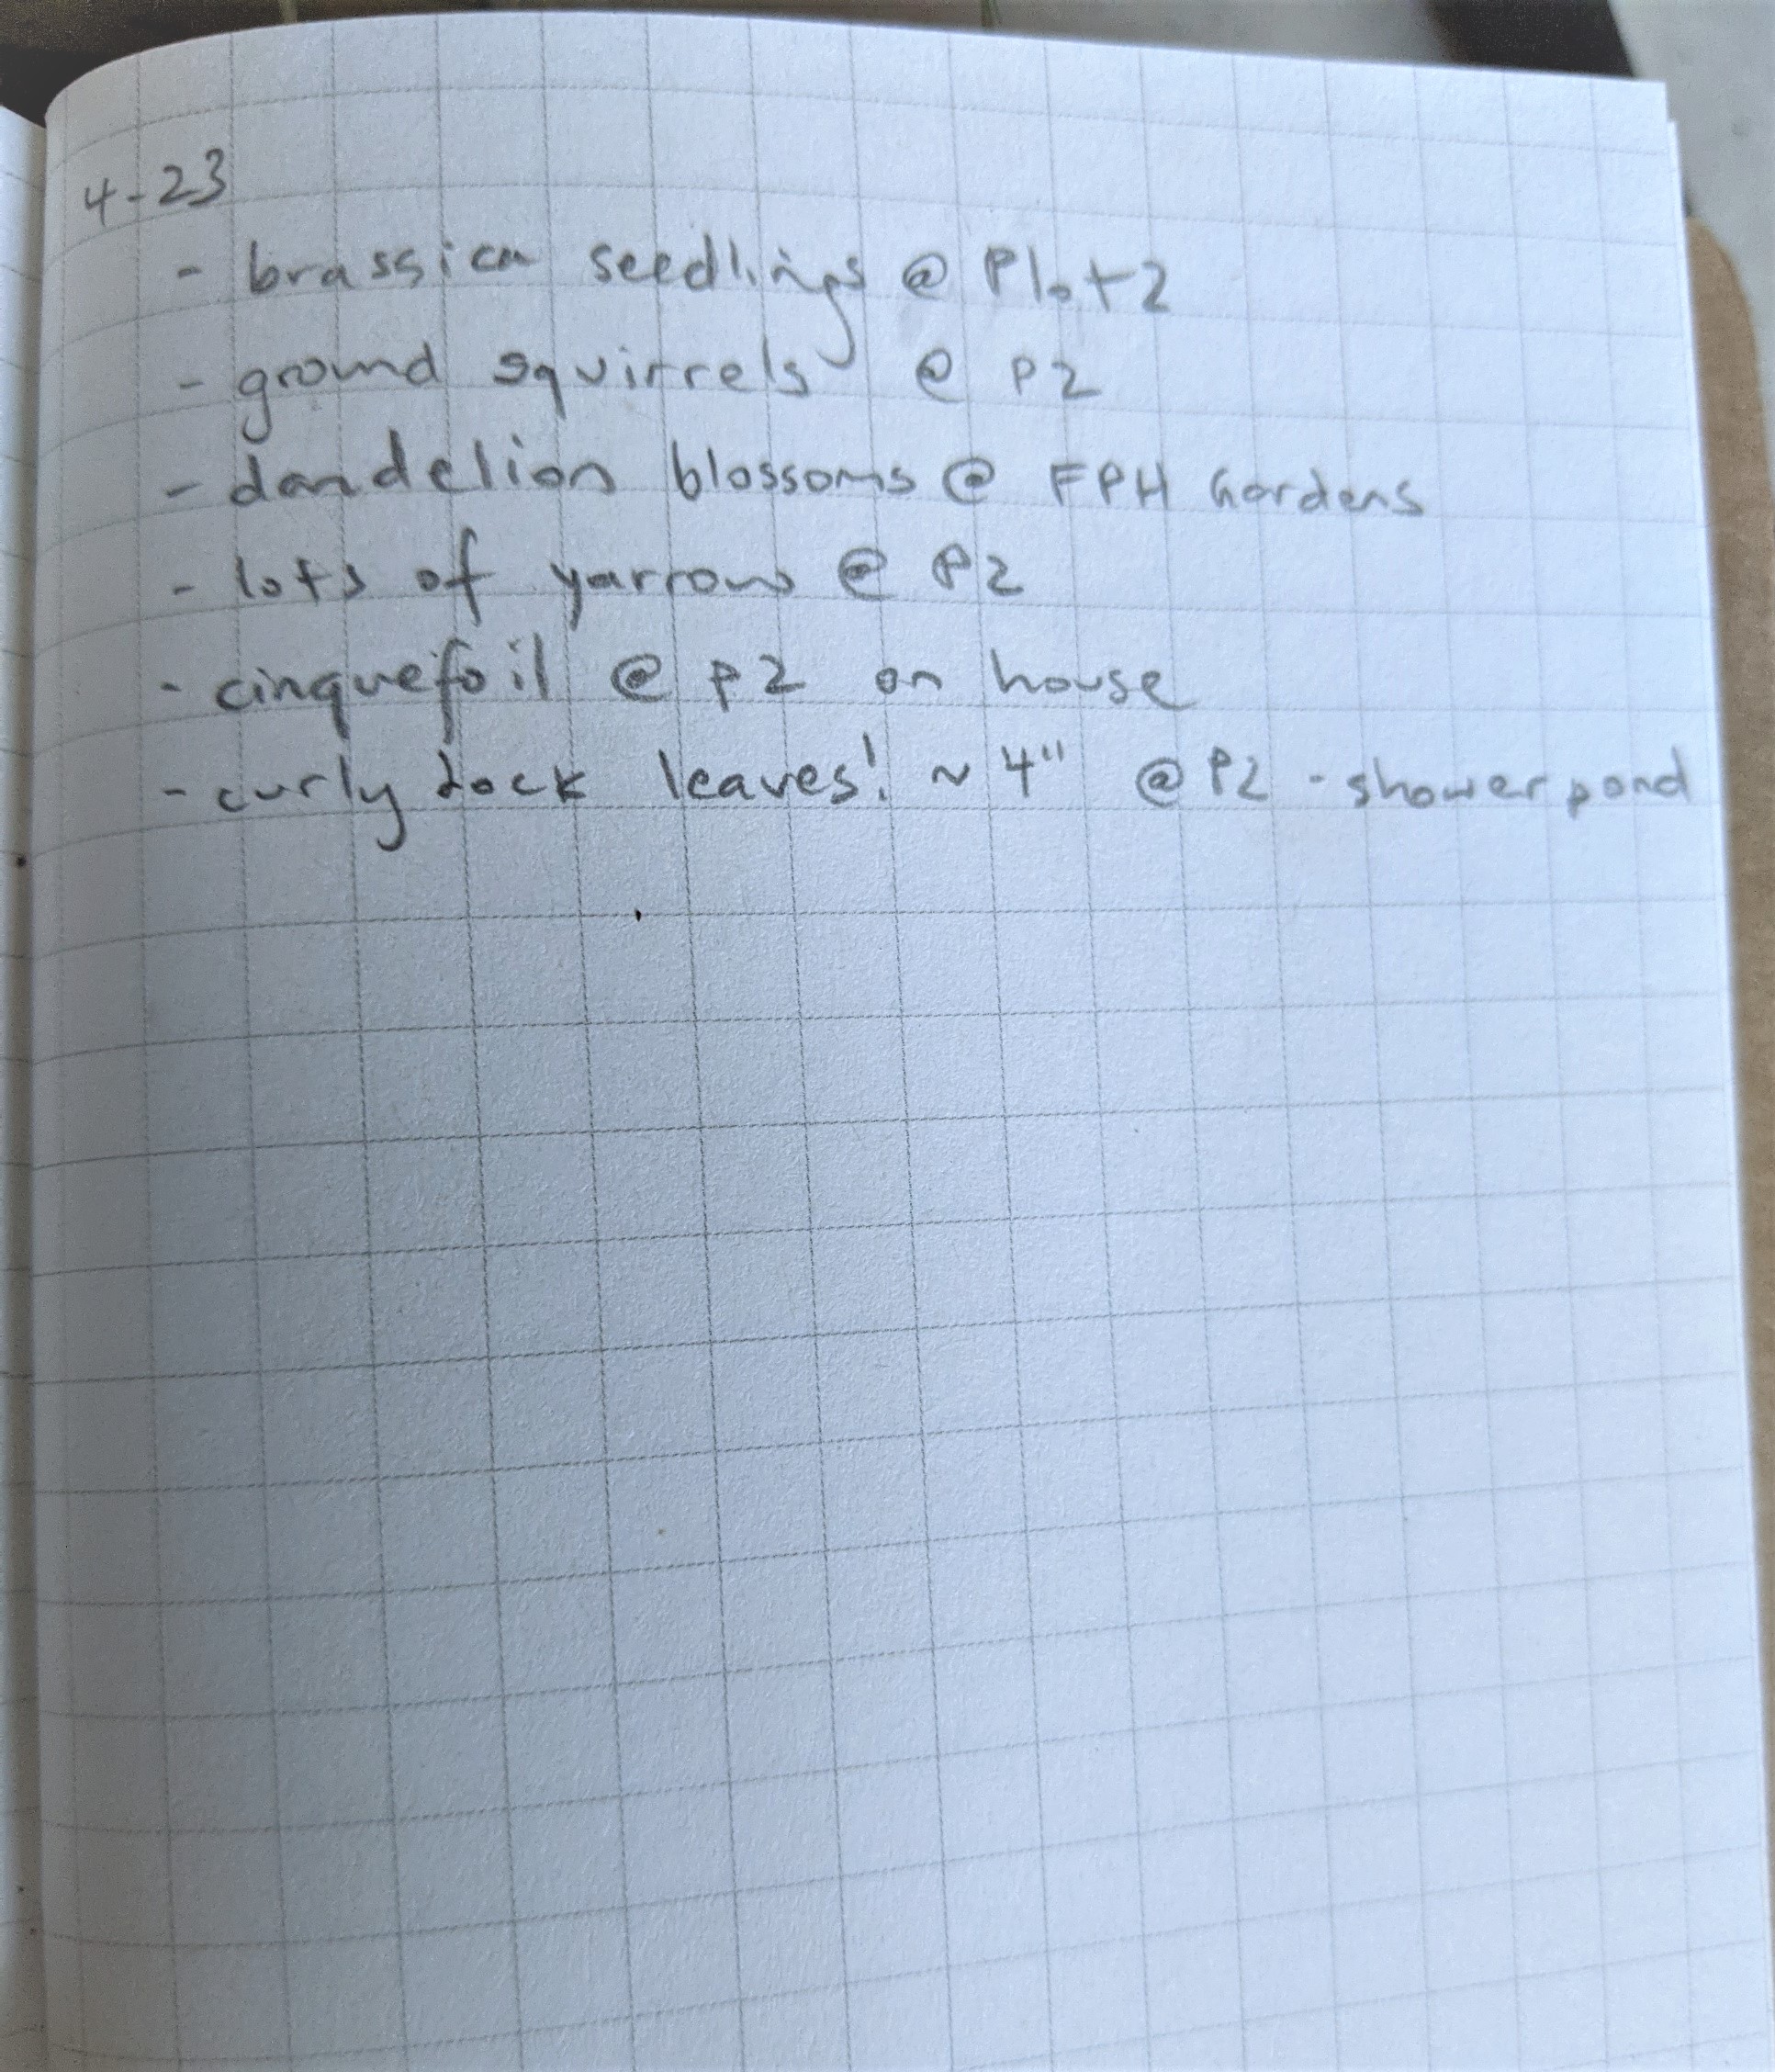 4-23
- brassica seedlings @ Plot 2
- ground squirrels @ P2
- dandelion blossoms @ FPH Gardens
- lots of yarrow @ P2
- cinquefoil @ P2 on house
- curly dock leaves! ~ 4" @ P2 - shower pond